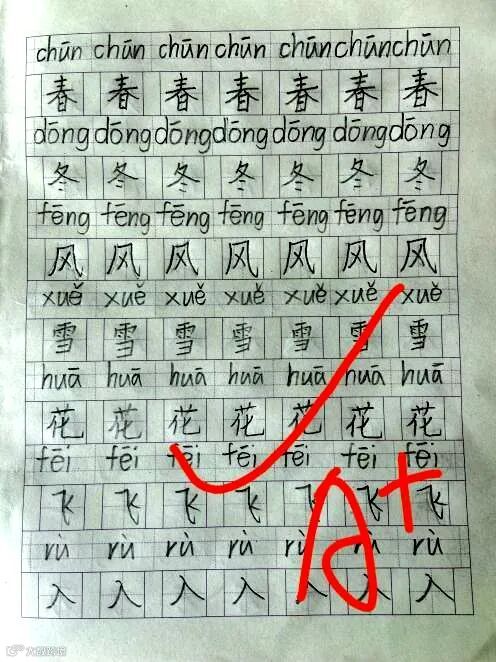 chūn chūn chūn chūn chūn chūn chūn
春 春 春 春 春 春 春
dōng dōng dōng dōng dōng dōng dōng
冬 冬 冬 冬 冬 冬 冬
fēng fēng fēng fēng fēng fēng fēng
风 风 风 风 风 风 风
xuě xuě xuě xuě xuě xuě xuě
雪 雪 雪 雪 雪 雪 雪
huā huā huā huā huā huā huā
花 花 花 花 花 花 花
fēi fēi fēi fēi fēi fēi fēi
飞 飞 飞 飞 飞 飞 飞
rù rù rù rù rù rù rù
入 入 入 入 入 入 入
A+